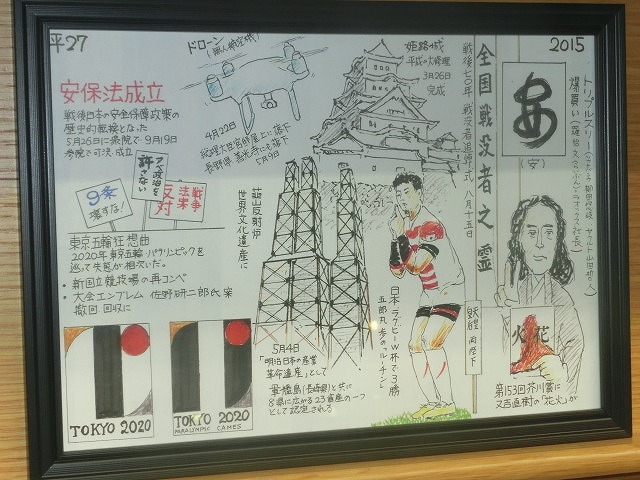 平27
2015
ドローン
(無人航空機)
4月22日
総理大臣官邸屋上に落下
長野県 善光寺にも落下
5月9日
姫路城
平成の大修理
3月26日
完成
安保法成立
戦後日本の安全保障政策の
歴史的転換となった
5月26日に衆院で 9月19日
参院で可決 成立
9条
壊すな!
アベ政治を
許さない
戦争
法案
反対
東京五輪狂想曲
2020年東京五輪・パラリンピックを
巡って失態が相次いだ。
・新国立競技場の再コンペ
・大会エンブレム 佐野研二郎氏案
撤回 回収に
TOKYO 2020
TOKYO 2020
PARALYMPIC GAMES
韮山反射炉
世界文化遺産に
5月4日
「明治日本の産業
革命遺産」として
軍艦島(長崎県)と共に
8県に広がる23資産の一つ
として認定される
日本ラグビーW杯で3勝
五郎丸 歩の「ルーチン」
戦後七〇年 戦没者追悼式 八月十五日
全国戦没者之霊
両陛下
安
(安)
トリプルスリー
爆買い
火花
第153回芥川賞に
又吉直樹の「花火」が